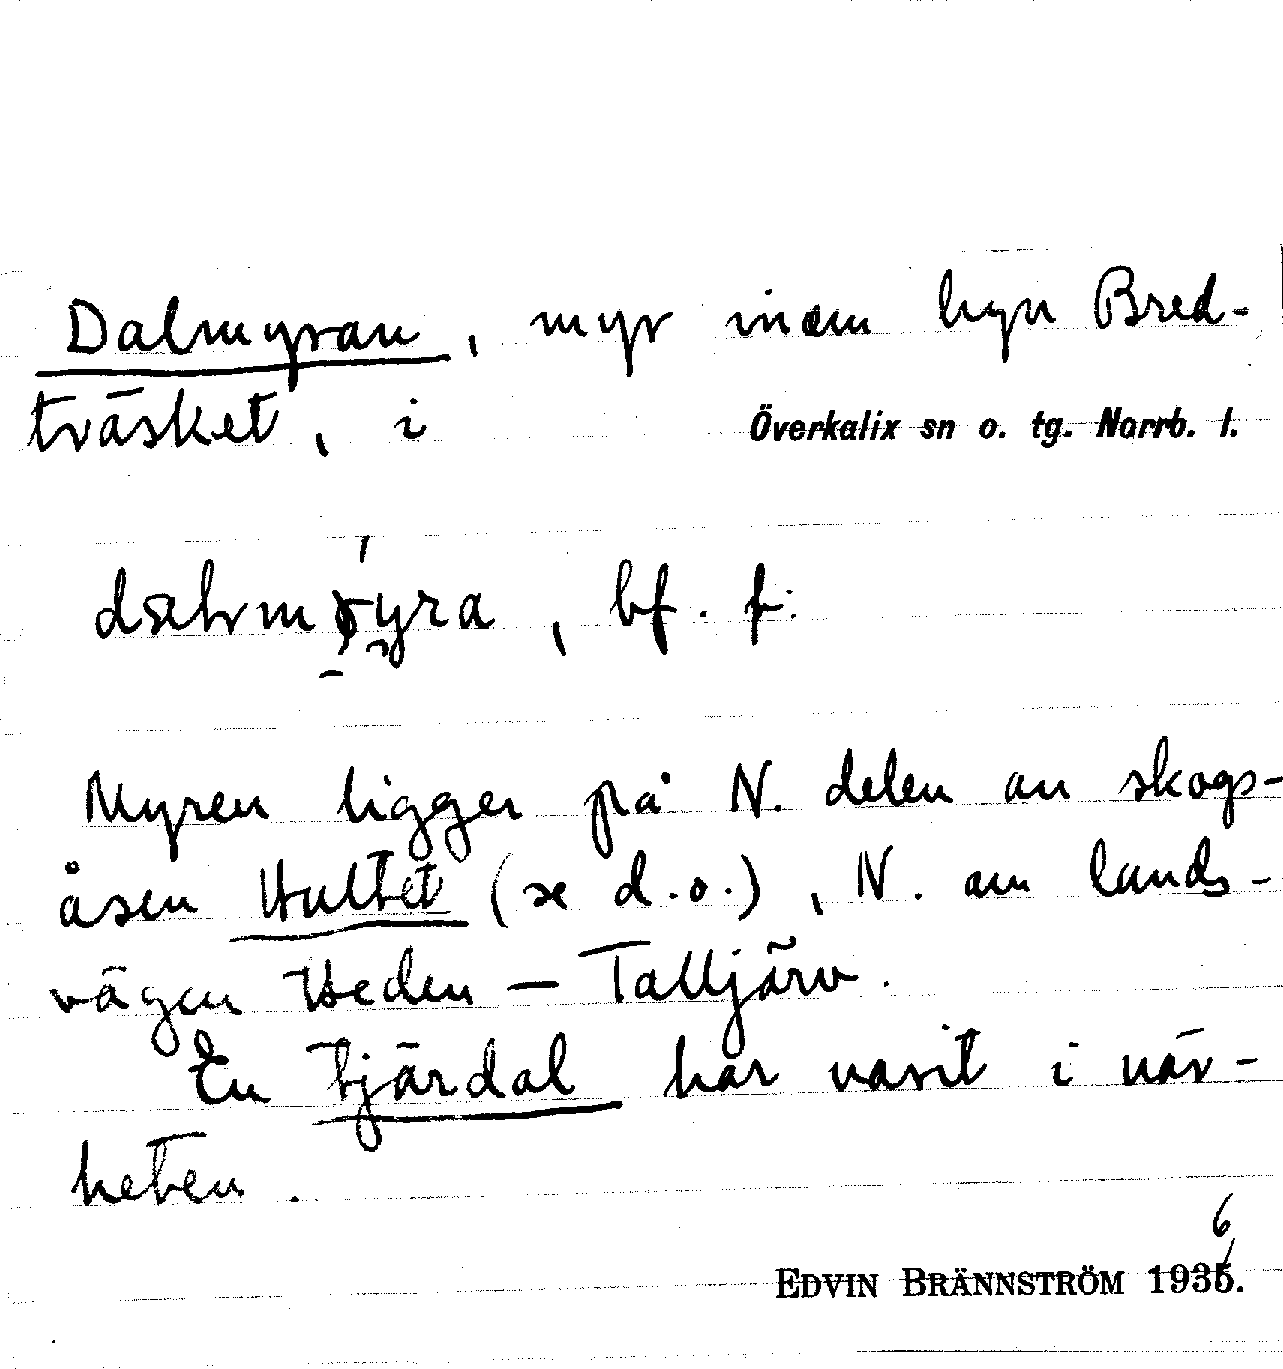 Dalmyran, myr inom byn Bred-
träsket, i Överkalix sn o. tg. Norrb. l.
bf. f.
Myren ligger på N. delen av skogs-
åsen Hultet (se d.o.), N. om lands-
vägen Heden — Talljärv.
En tjärdal har varit i när-
heten.
6
EDVIN BRÄNNSTRÖM 1935.